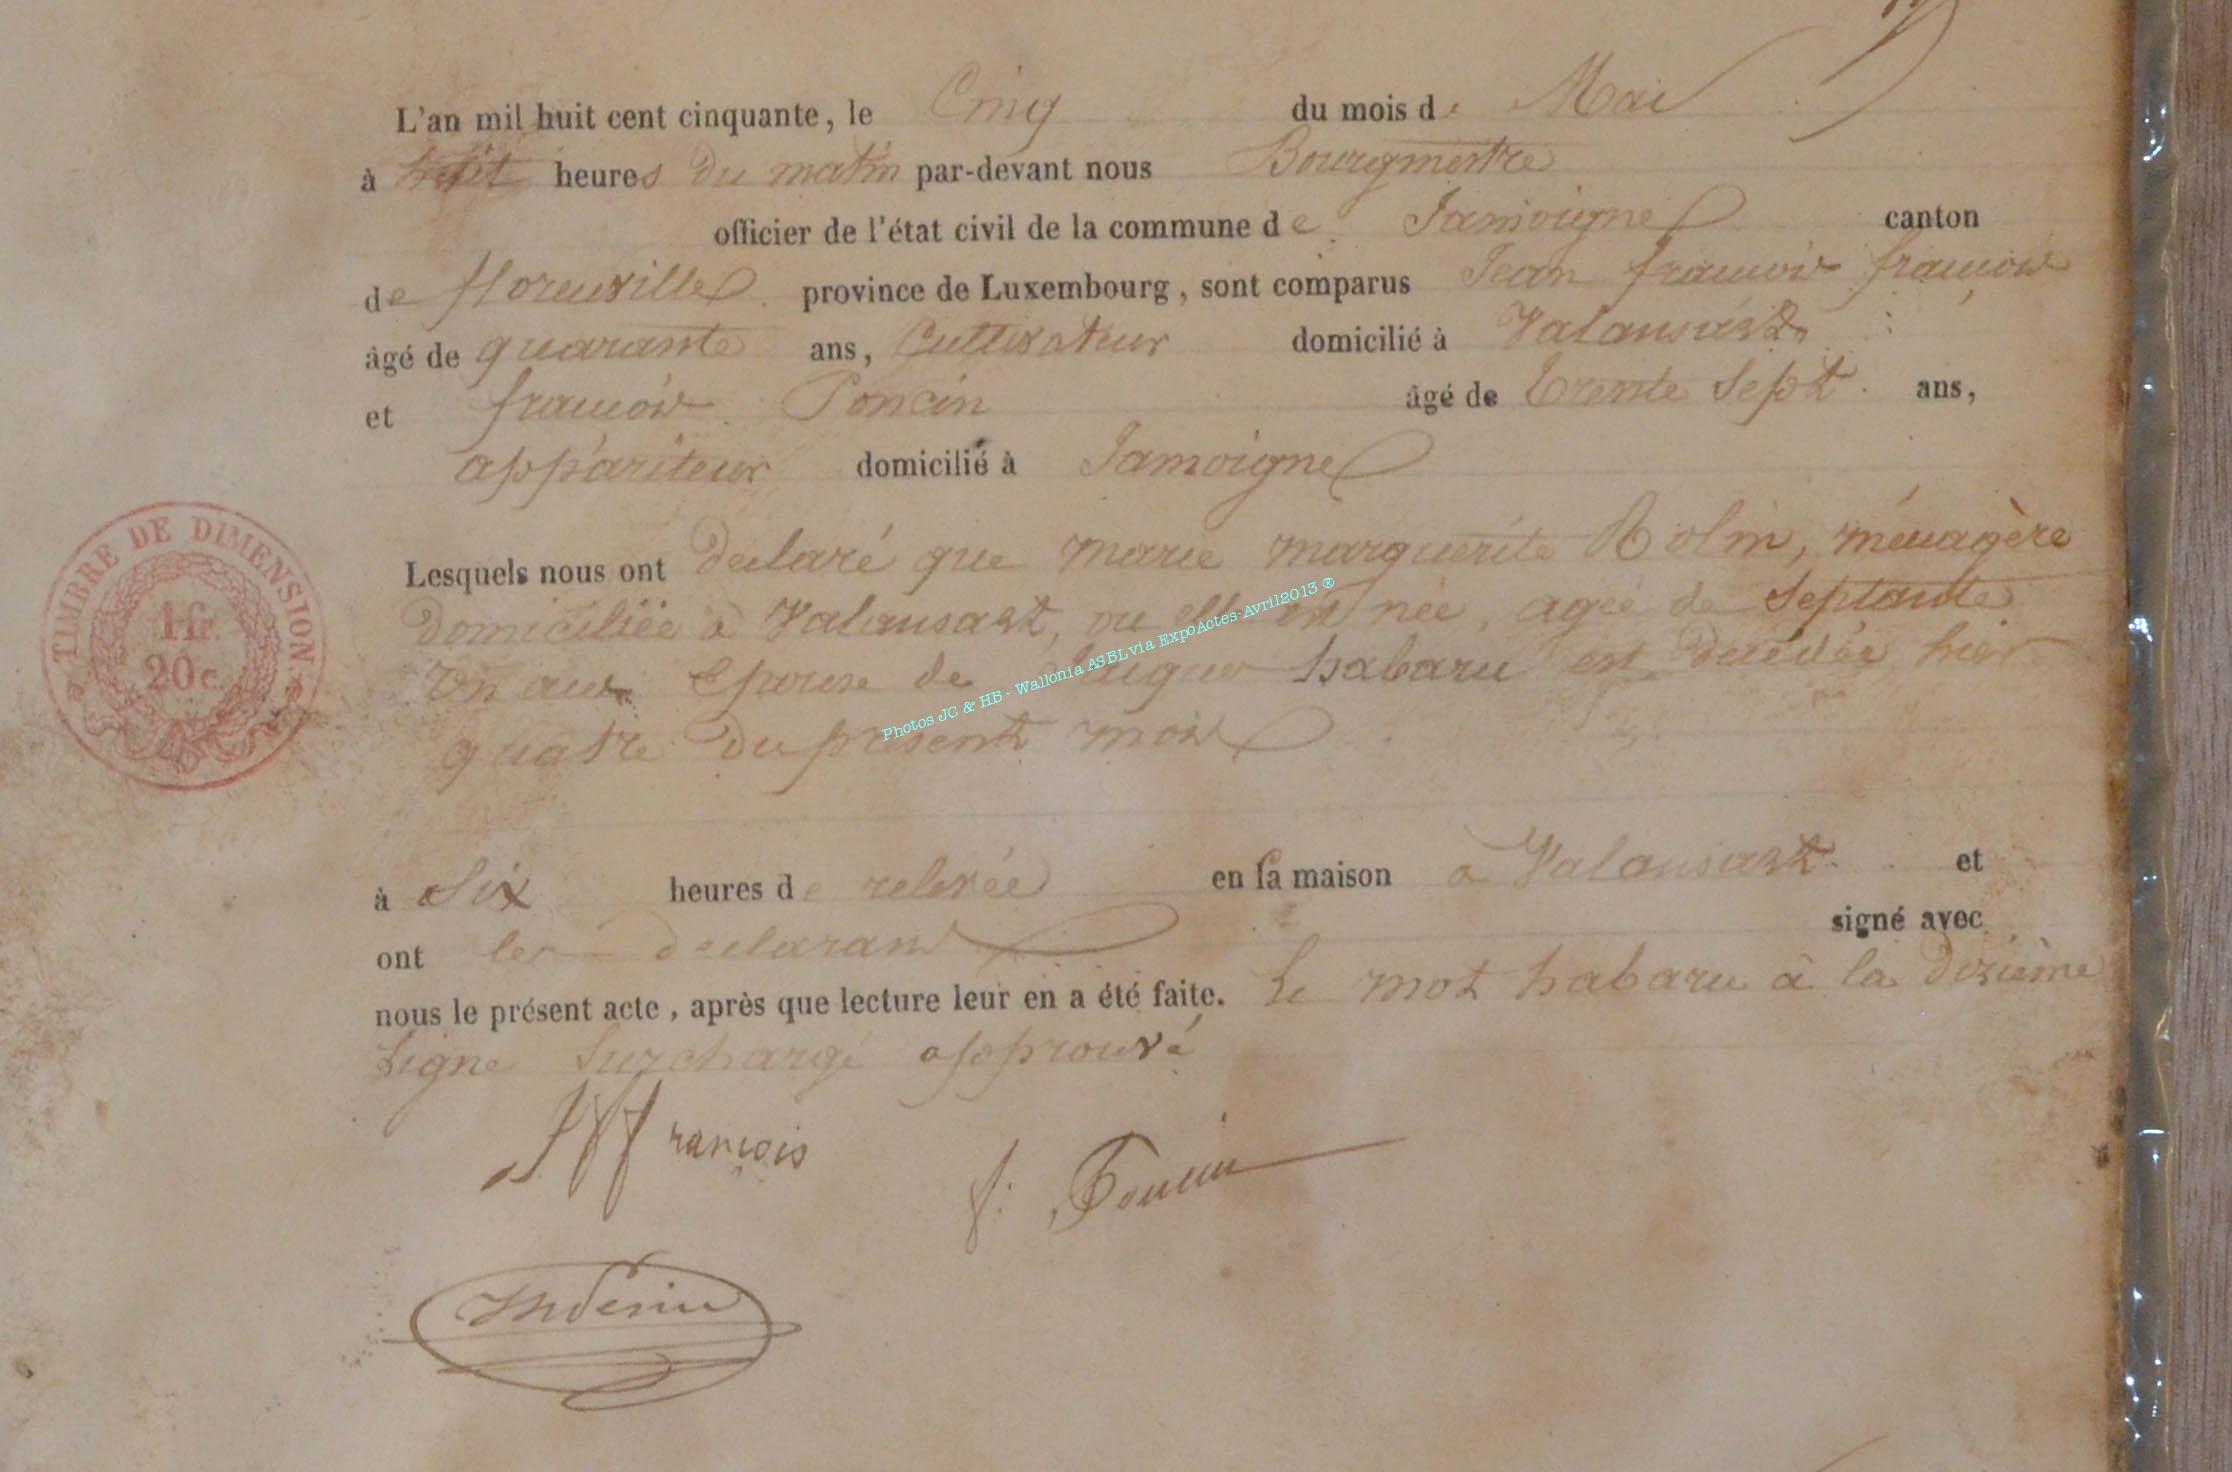 L'an mil huit cent cinquante, le Cinq du mois de Mai
à heures du matin par-devant nous Bourgmestre
officier de l'état civil de la commune de Jamoigne canton
de florenville province de Luxembourg, sont comparus Jean françois françois
âgé de quarante ans, Cultivateur domicilié à Valansart
et françois Poncin âgé de trente Sept ans,
appariteur domicilié à Jamoigne
Lesquels nous ont déclaré que marie marguerite Rolin, ménagère
domiciliée à Valansart, ou elle est née, agée de Septante
un ans Epouse de habaru est décédée hier
quatre du présent mois
à Six heures de relevée en sa maison a Valansart et
ont les déclarans signé avec
nous le présent acte, après que lecture leur en a été faite. Le mot habaru à la dixième
Ligne Surchargé approuvé
JFFrançois
f. Poncin
TIMBRE DE DIMENSION
1 fr.
20 c.
Photos JC & HB - Wallonia ASBL via ExpoActes-Avril2013 ®